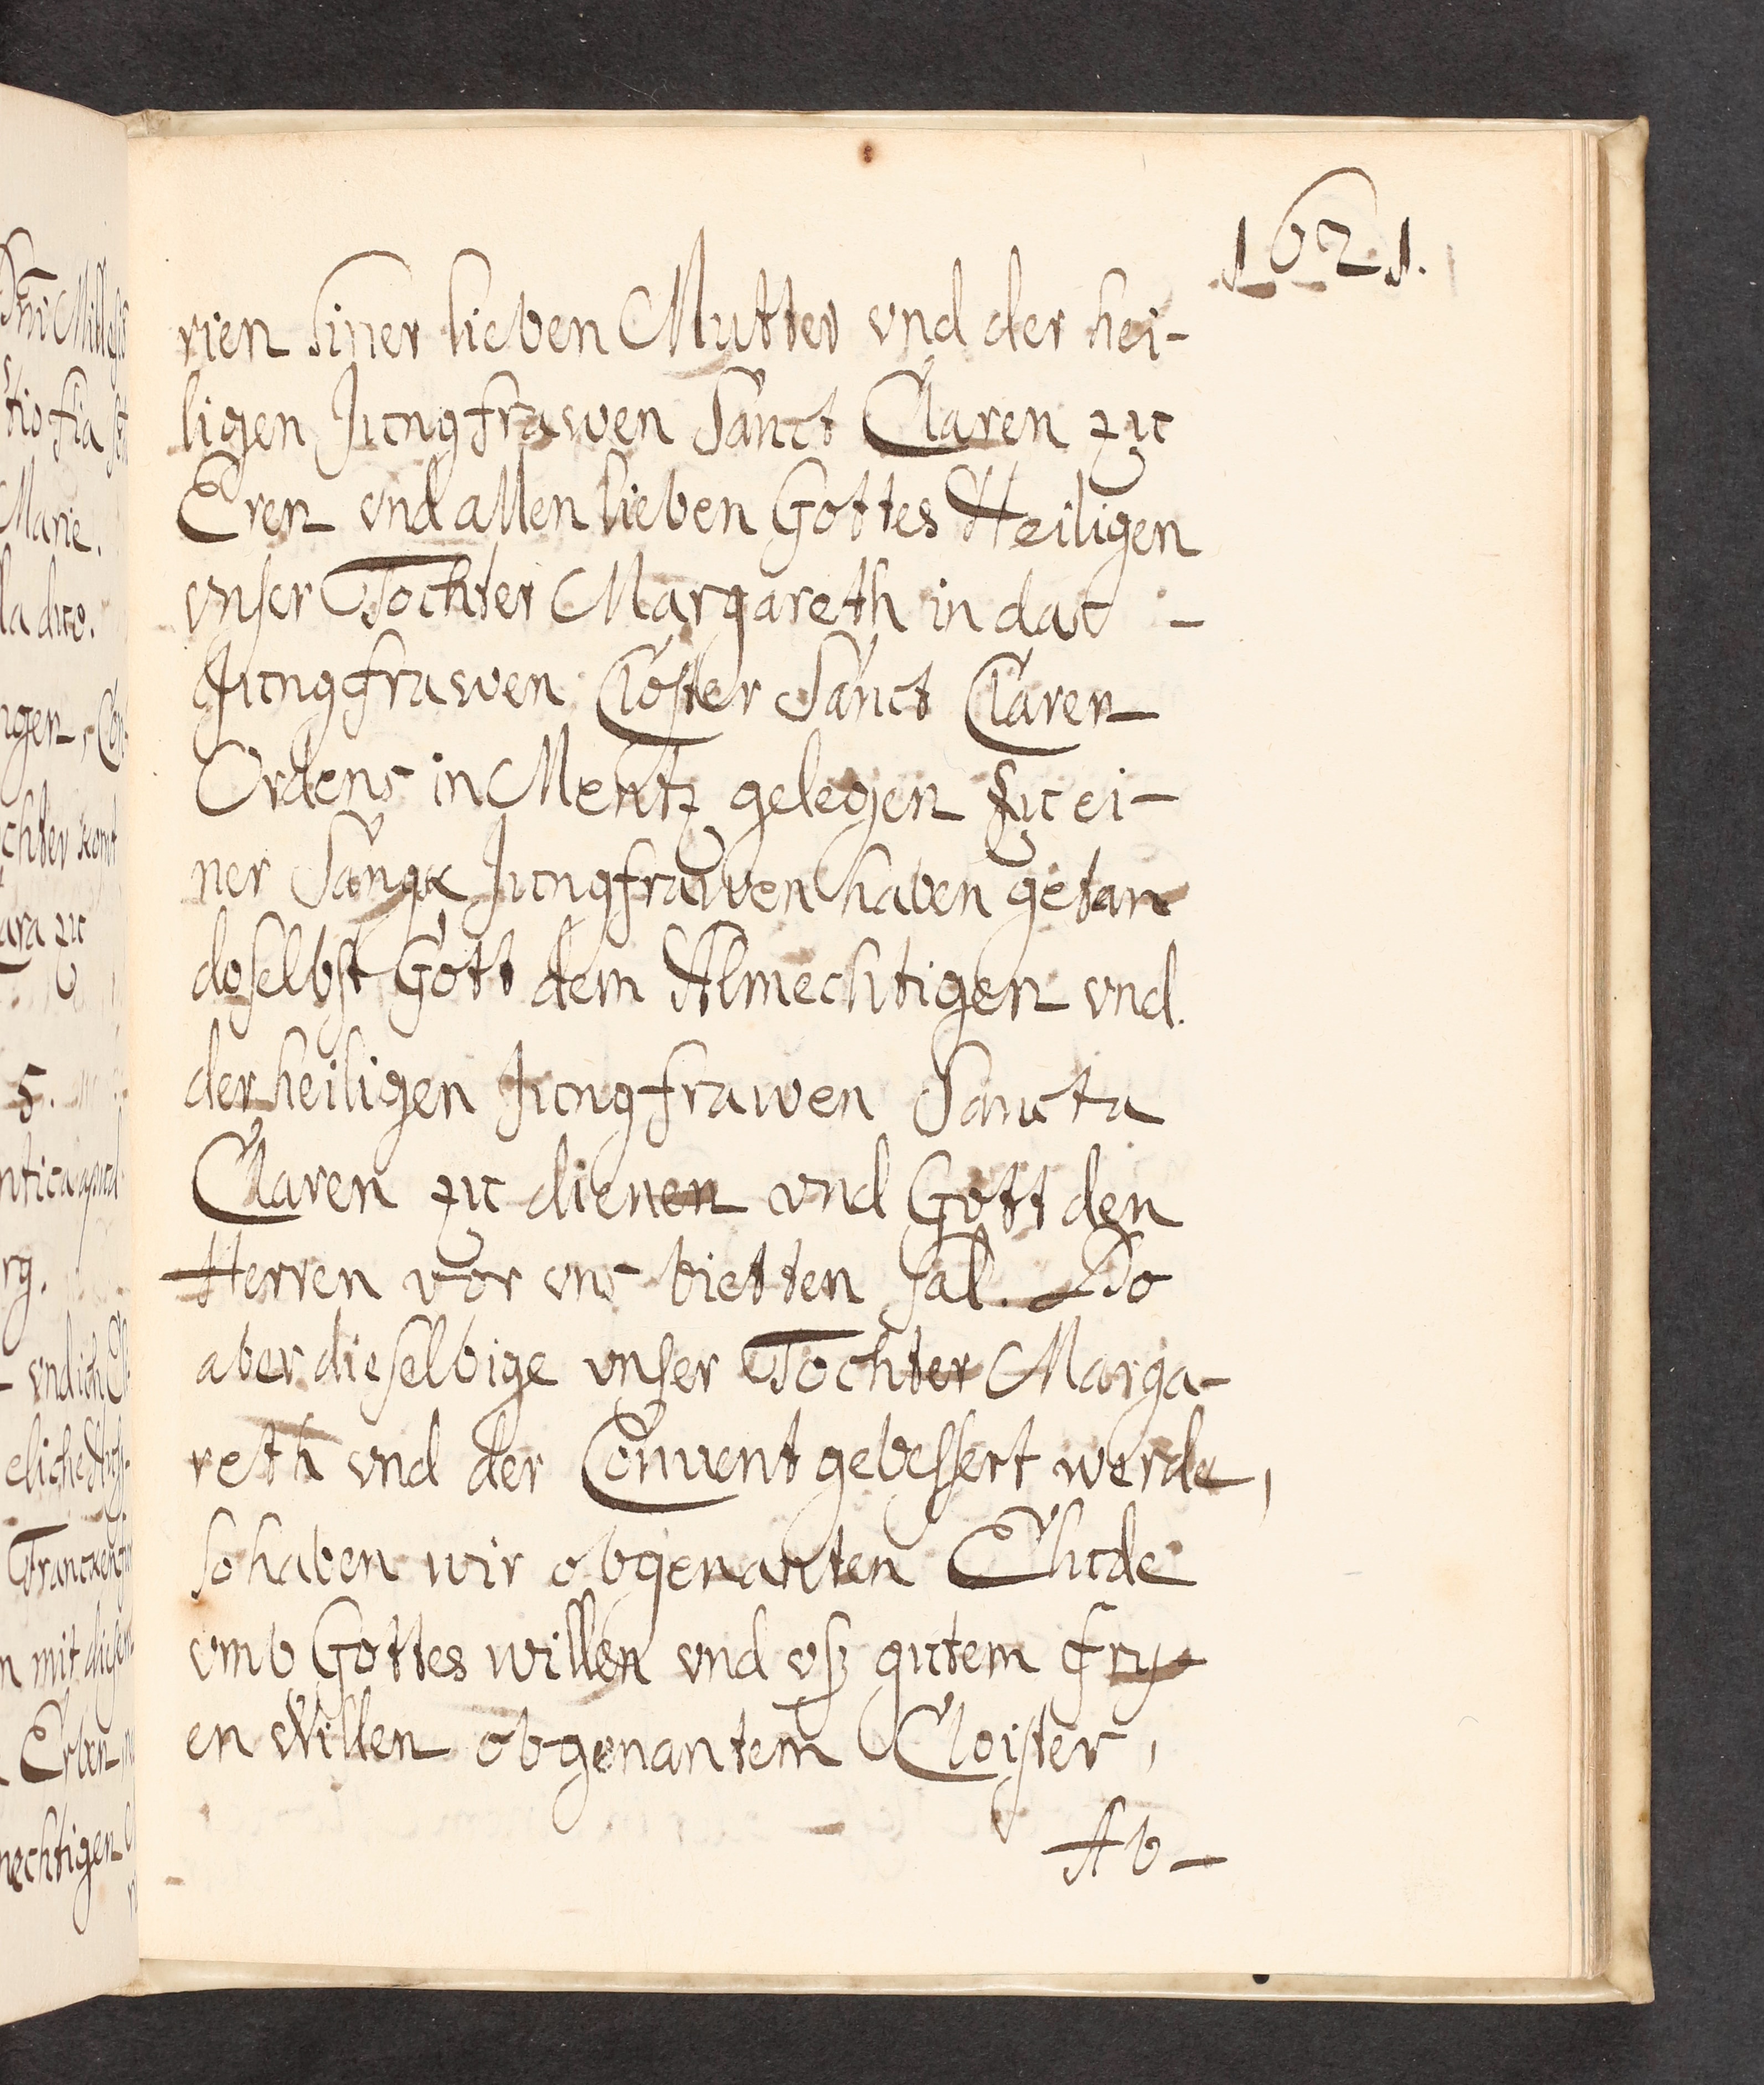 1621.
rien siner lieben Mutter vnd der hei-
ligen Jungfrawen Sanct Claren zu
Eren vnd allen lieben Gottes Heiligen
vnser Tochter Margareth in dat -
Jungfrawen Closter Sanct Claren
Ordens in Mentz gelegen zu ei-
ner Sangk Jungfrawen haben getan
doselbst Gott dem Almechtigen vnd
der heiligen Jungfrawen Sancta
Claren zu dienen vnd Gott den
Herren vor vns bietten sal. Do
aber dieselbige vnser Tochter Marga-
reth vnd der Conuent gebessert werde,
so haben wir obgenanten Elude
vmb Gottes willen vnd vß gutem fry-
en Willen obgenantem Cloister,
Ab-
Marie.
la dico.
ngen,
chter
ara zu
5.
rg.
vnd ich
eliche
n mit
Erben
mechtigen